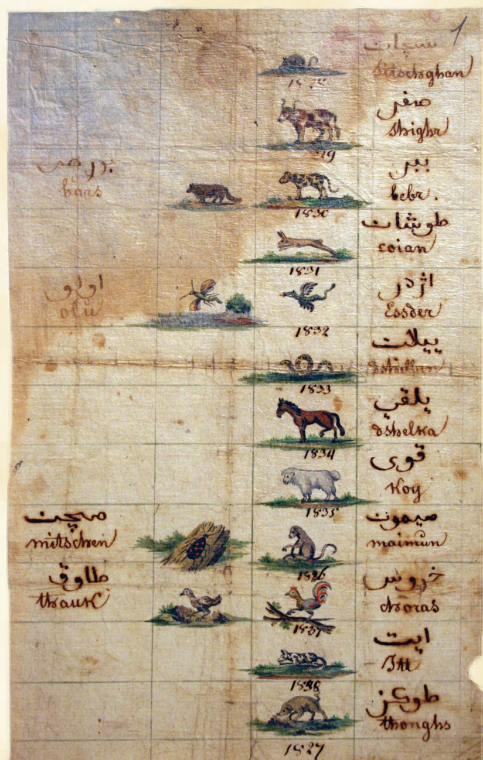 1
Sitschghan
صغر
Shighr
29
بارس
bars
ببر
bebr.
1830
طوشان
1831
اولو
olu
اژدر
Essder
1832
ییلان
1833
یلقي
dshelka
1834
قوی
Koy
1835
میچین
mitschein
میمون
maimun
1836
طاوق
thauk
خروس
choras
1837
ایت
Itt
1838
طوڭز
thonghs
1827